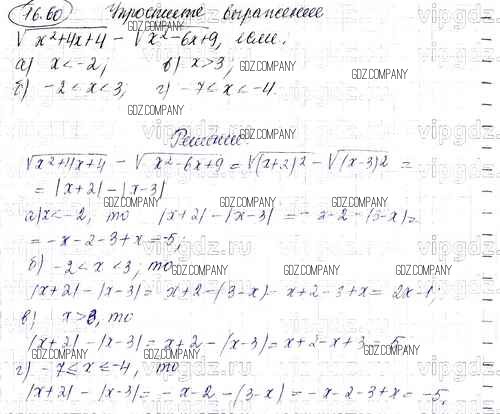 16.60 Упростите выражение
√x²+4x+4 − √x²−6x+9, если:
а) x<-2; в) x>3;
б) -2<x<3; г) -7≤x≤-4.
Решение:
√x²+4x+4 − √x²−6x+9 = √(x+2)² − √(x−3)² =
= |x+2| − |x−3|
а) x<-2, то |x+2| − |x−3| = −x−2−(3−x) =
= −x−2−3+x = −5;
б) -2<x<3; то
|x+2| − |x−3| = x+2−(3−x) = x+2−3+x = 2x−1;
в) x>3, то
|x+2| − |x−3| = x+2−(x−3) = x+2−x+3 = 5
г) −7≤x≤−4, то
|x+2| − |x−3| = −x−2−(3−x) = −x−2−3+x = −5.
GDZ.COMPANY
vipgdz.ru